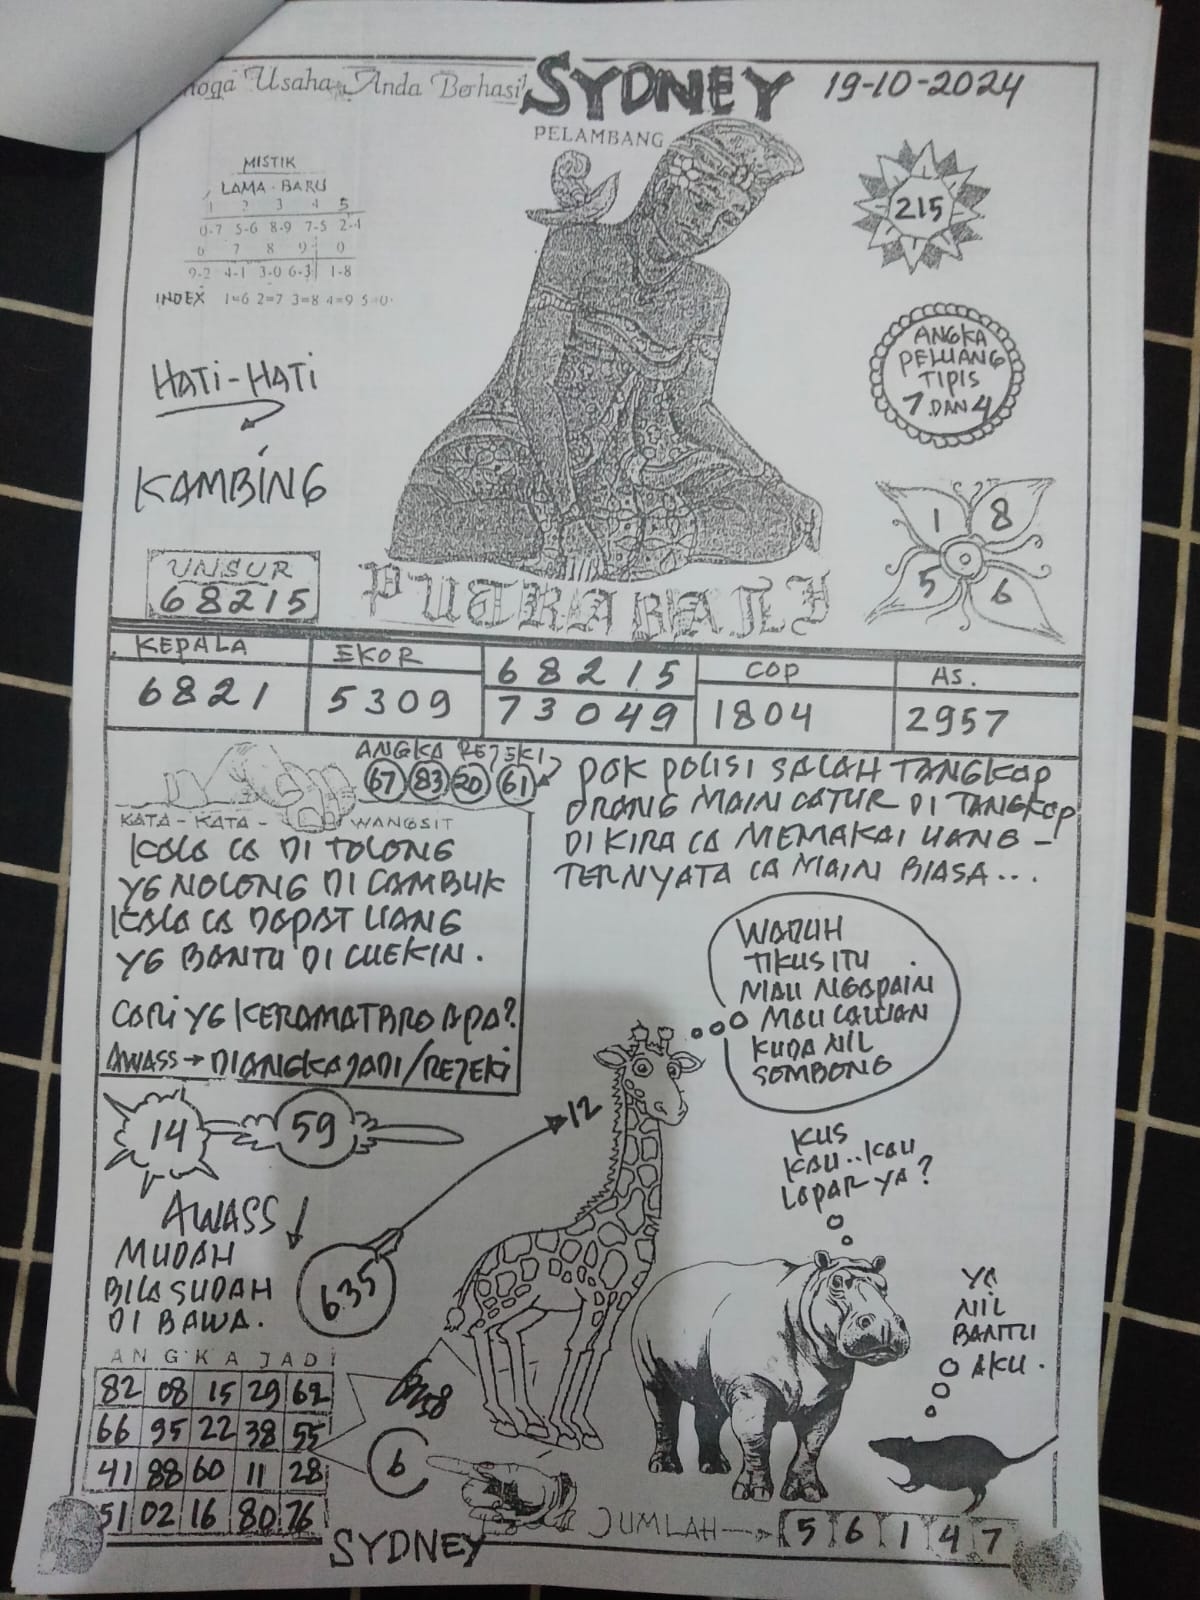 oga Usaha Anda Berhasil
SYDNEY
19-10-2024
PELAMBANG
MISTIK
LAMA - BARU
1 2 3 4 5
0-7 5-6 8-9 7-5 2-4
6 7 8 9 0
9-2 4-1 3-0 6-3 1-8
INDEX 1=6 2=7 3=8 4=9 5=0
215
ANGKA
PELUANG
TIPIS
7 DAN 4
HATI-HATI
KAMBING
1 8
5 6
UNSUR
68215
PUTRA BALI
KEPALA
6821
EKOR
5309
68215
73049
COP
1804
AS.
2957
ANGKA REJEKI
67 83 20 61
KATA - KATA - WANGSIT
KALA CA DI TOLONG
YG NOLONG DI CAMBUK
KALA CA DAPAT UANG
YG BANTU DI CUEKIN.
CARI YG KERAMAT BRO APA?
AWASS → DIANGKA JADI/REJEKI
POK POLISI SALAH TANGKAP
ORANG MAIN CATUR DI TANGKAP
DI KIRA CA MEMAKAI UANG -
TERNYATA CA MAIN BIASA...
WADUH
TIKUS ITU
MAU NGAPAIN
MAU LAWAN
KUDA NIL
SOMBONG
14 59
12
AWASS
MUDAH
BILA SUDAH
DI BAWA.
635
KUS
KAU..KAU
LAPAR YA?
YA
NIL
BANTU
AKU.
ANGKA JADI
82 08 15 29 62
66 95 22 38 55
41 88 60 11 28
51 02 16 80 76
6
JUMLAH → 5 6 1 4 7
SYDNEY